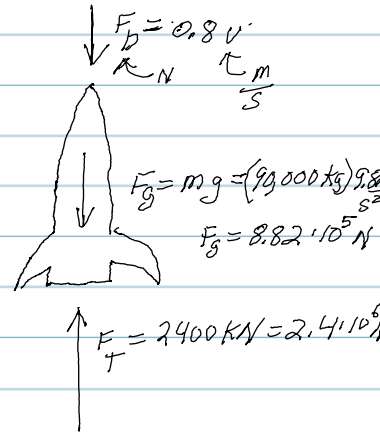 F_D = 0.8 v
N m/s
F_g = mg = (90,000 kg) 9.8 s²
F_g = 8.82 · 10⁵ N
F_T = 2400 KN = 2.4 · 10⁶